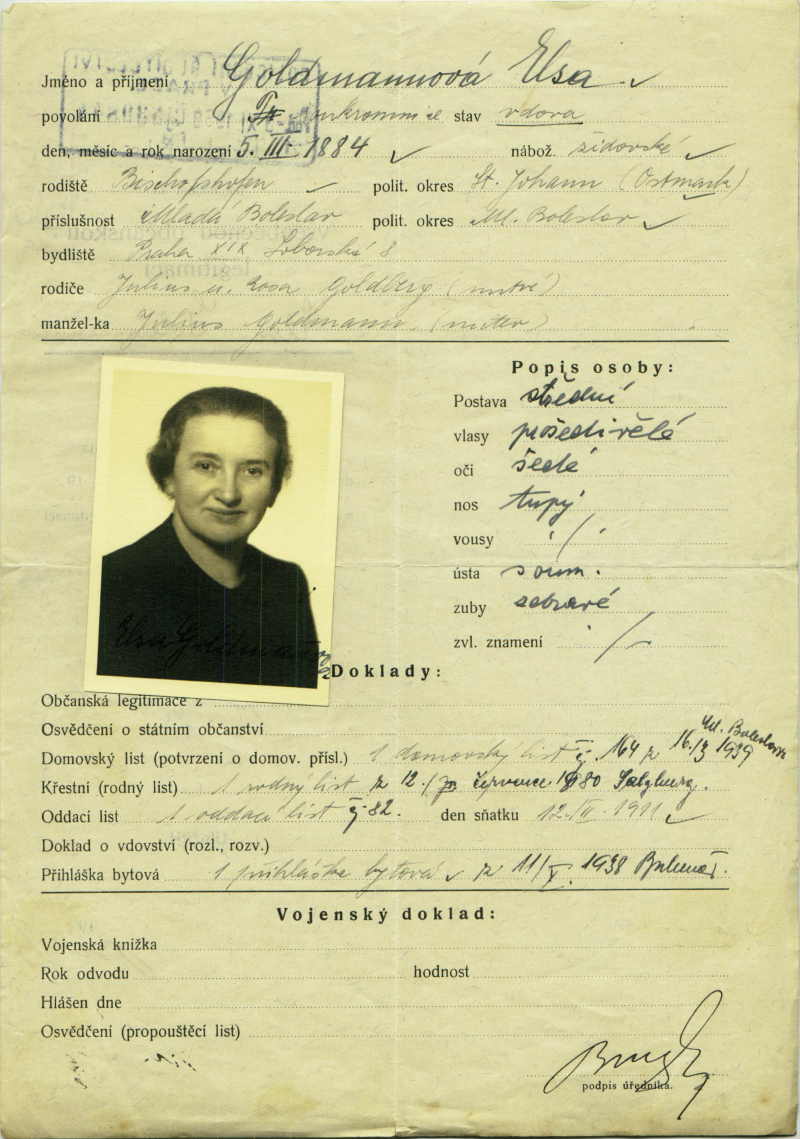 Jméno a příjmení Goldmannová Elsa
povolání soukromnice stav vdova
den, měsíc a rok narození 5. III. 1884 nábož. židovské
rodiště Bischofshofen polit. okres St. Johann (Ostmark)
příslušnost Mladá Boleslav polit. okres Ml. Boleslav
bydliště Praha XIX 8
rodiče Julius a. Rosa Goldberg (mrtvé)
manžel-ka Julius Goldmann (mrtev)
Popis osoby:
Postava střední
vlasy prošedivělé
oči šedé
nos tupý
vousy /
ústa soum.
zuby
zvl. znamení /
Elsa Goldmann
Doklady:
Občanská legitimace z
Osvědčení o státním občanství
Domovský list (potvrzení o domov. přísl.) 1 domovský list č. 164 z 16./3 1939 Ml. Boleslav
Křestní (rodný list) 1 rodný list z 12./ července Salzburg.
Oddací list 1 oddací list č 82. den sňatku 12. 1911
Doklad o vdovství (rozl., rozv.)
Přihláška bytová 1 přihláška bytová z 11/X. 1938
Vojenský doklad:
Vojenská knížka
Rok odvodu hodnost
Hlášen dne
Osvědčení (propouštěcí list)
podpis úředníka.